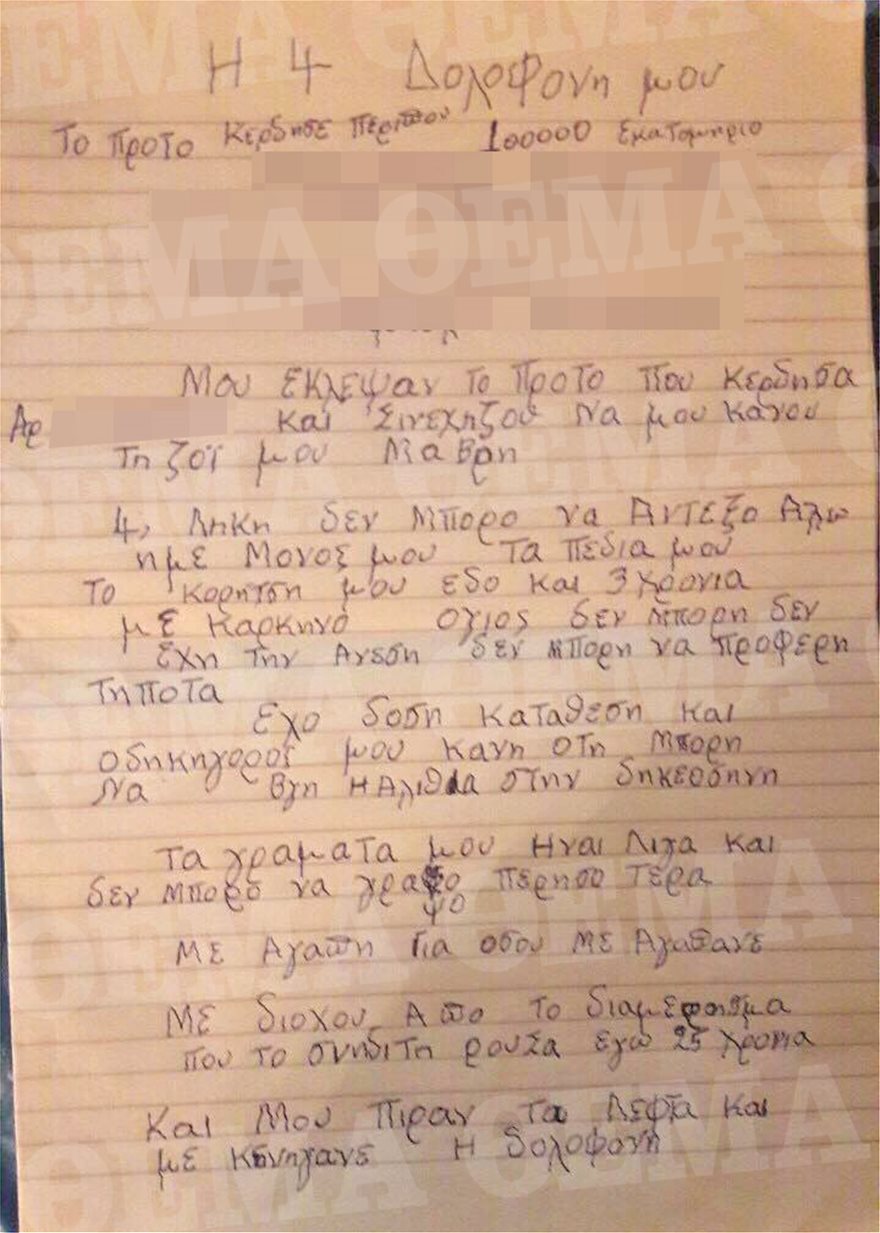 Η 4 Δολοφονη μου
Το προτο Κερδησε περιπου 100000 εκατομηριο
Μου εκλεψαν το προτο που κερδησα
Αρ και Σινεχηζου Να μου κανου
Τη ζοϊ μου Μαβρη
4, Ληκη δεν Μπορο να Αντεξο Αλω
ημε Μονος μου τα πεδια μου
Το κορητση μου εδο και 3 χρονια
με Καρκηνο ογιος δεν Μπορη δεν
εχη την Ανεση δεν μπορη να προφερη
Τηποτα
Εχο δοση καταθεση και
οδηκηγοροϊ μου κανη οτη Μπορη
Να Βγη Η Αλιθια στην δηκεοσηνη
Τα γραματα μου Ηναι Λιγα και
δεν Μπορο να γραψο περησο τερα
ψο
Με Αγαπη Για οσου Με Αγαπανε
Με διοχου Απο το διαμερησμα
που το σηνδιτη ρουσα εγω 25 χρονια
Και Μου Πιραν τα Λεφτα και
με Κυνηγανε Η δολοφονη
ΘΕΜΑ